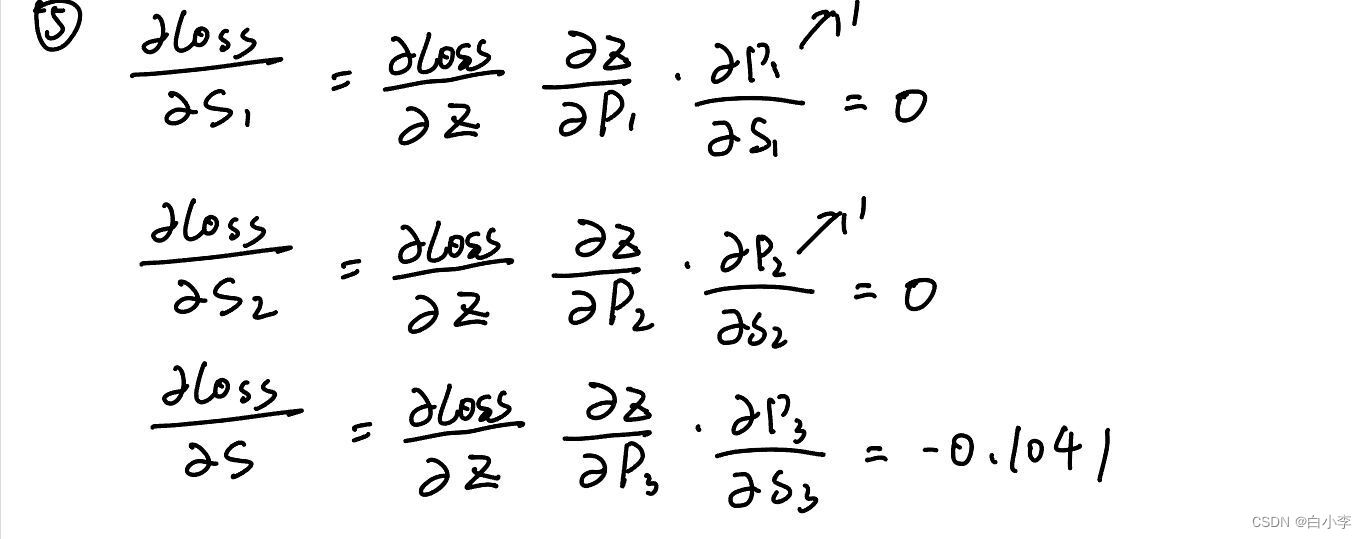 ⑤ ∂loss/∂S₁ = ∂loss/∂Z ∂Z/∂P₁ · ∂P₁/∂S₁ ↗1 = 0
∂loss/∂S₂ = ∂loss/∂Z ∂Z/∂P₂ · ∂P₂/∂S₂ ↗1 = 0
∂loss/∂S = ∂loss/∂Z ∂Z/∂P₃ · ∂P₃/∂S₃ = -0.1041
CSDN @白小李